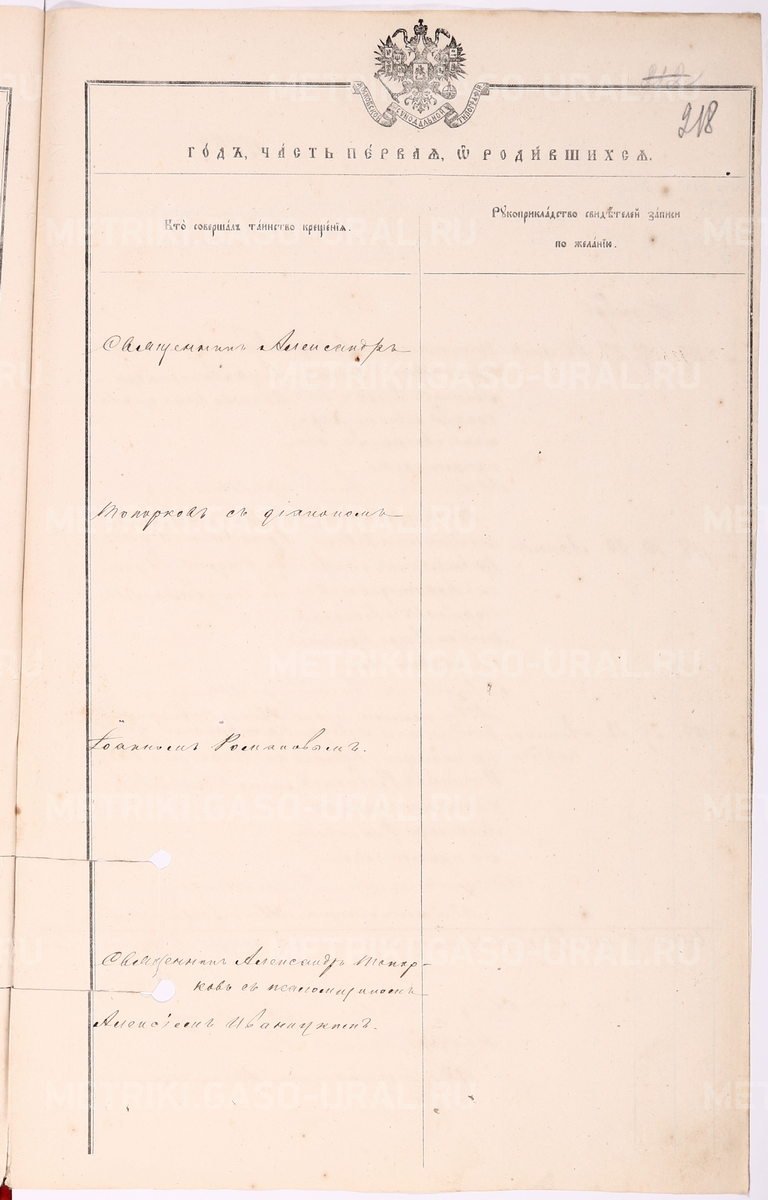 МОСКОВСКОЙ СѴНОДАЛЬНОЙ ТИПОГРАФІИ
218
218
ГО́ДЪ, ЧА́СТЬ ПЕ́РВАѦ, Ѡ҆ РОДИ́ВШИХСѦ.
Кто̀ соверша́лъ та́инство креще́нїѧ.
Рꙋкоприкла́дство свидѣ́телей за́писи
по жела́нїю.
Священникъ Александръ
Топорковъ съ діакономъ
Іоанномъ Романовымъ.
Священникъ Александръ Топор-
ковъ съ псаломщикомъ
Алексіемъ Иваницкимъ.
METRIKI.GASO-URAL.RU